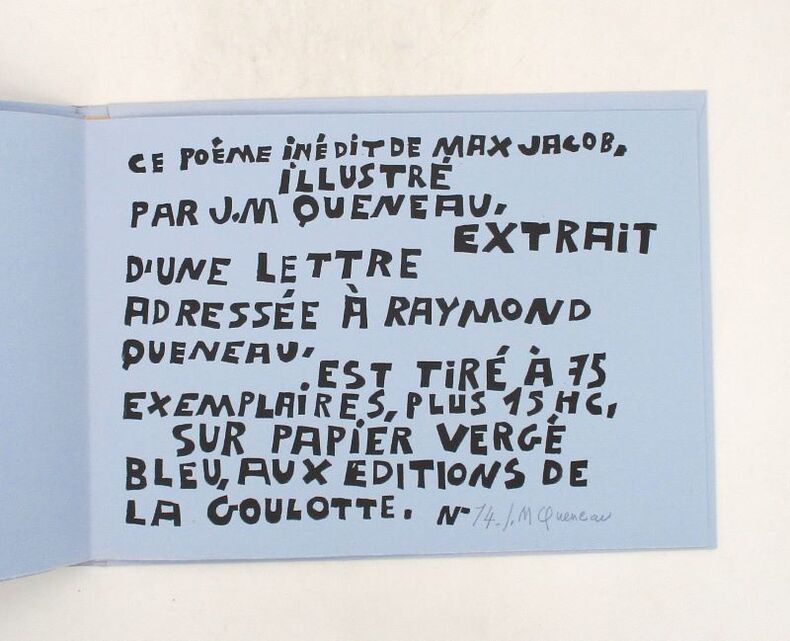 CE POÈME INÉDIT DE MAX JACOB,
ILLUSTRÉ
PAR J.M QUENEAU,
EXTRAIT
D'UNE LETTRE
ADRESSÉE À RAYMOND
QUENEAU,
EST TIRÉ À 75
EXEMPLAIRES, PLUS 15 HC,
SUR PAPIER VERGÉ
BLEU, AUX EDITIONS DE
LA GOULOTTE. N° 74. J.M Queneau